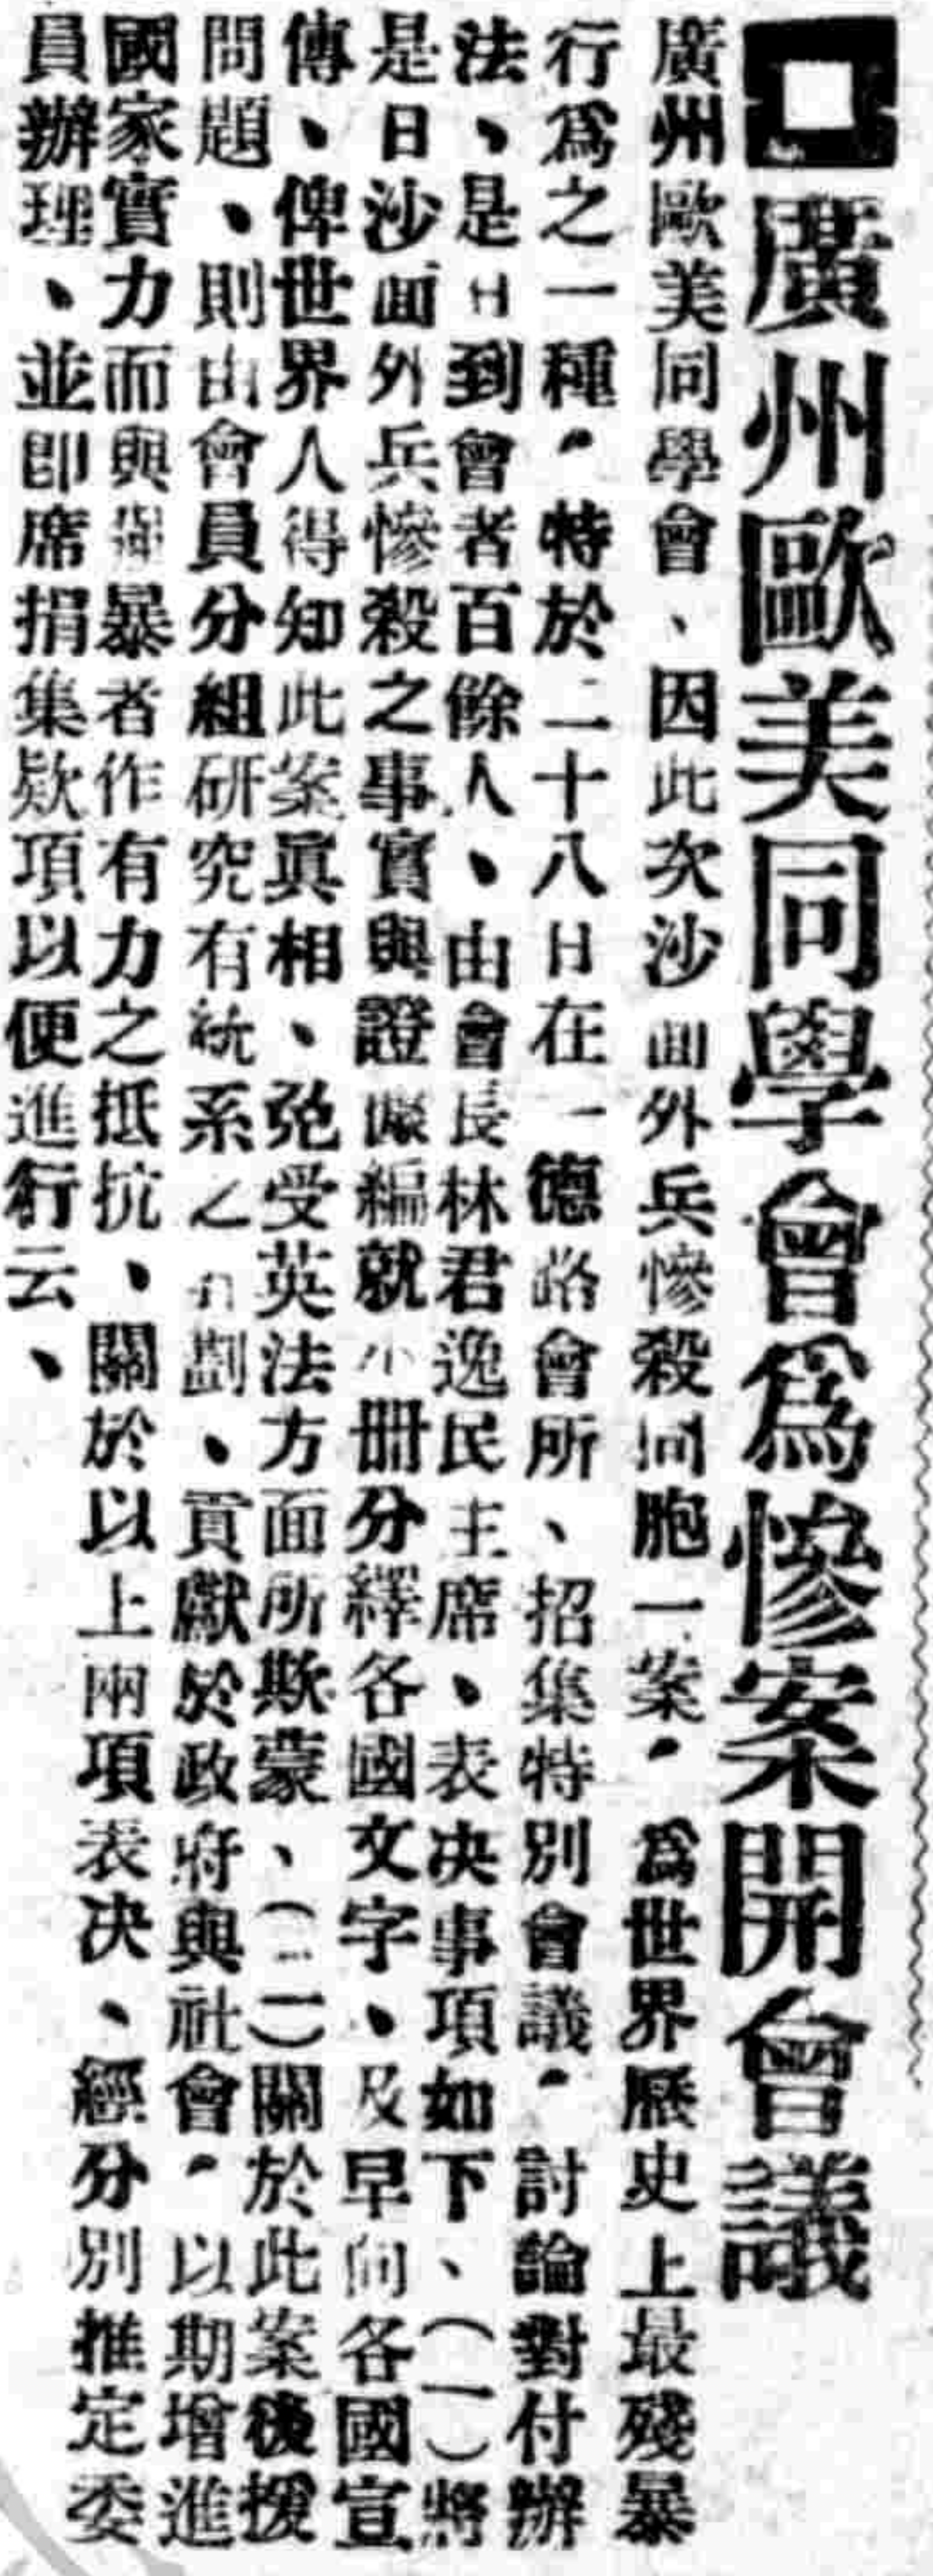 廣州歐美同學會爲慘案開會議
廣州歐美同學會、因此次沙面外兵慘殺同胞一案，爲世界歷史上最殘暴
行爲之一種，特於二十八日在一德路會所、招集特別會議，討論對付辦
法、是日到會者百餘人、由會長林君逸民主席、表决事項如下、（一）將
是日沙面外兵慘殺之事實與證據編就小冊分繹各國文字、及早向各國宣
傳、俾世界人得知此案眞相、免受英法方面所欺蒙、（二）關於此案後援
問題、則由會員分組研究有統系之計劃、貢獻於政府與社會，以期增進
國家實力而與強暴者作有力之抵抗、關於以上兩項表决、經分別推定委
員辦理、並卽席捐集欵項以便進行云、